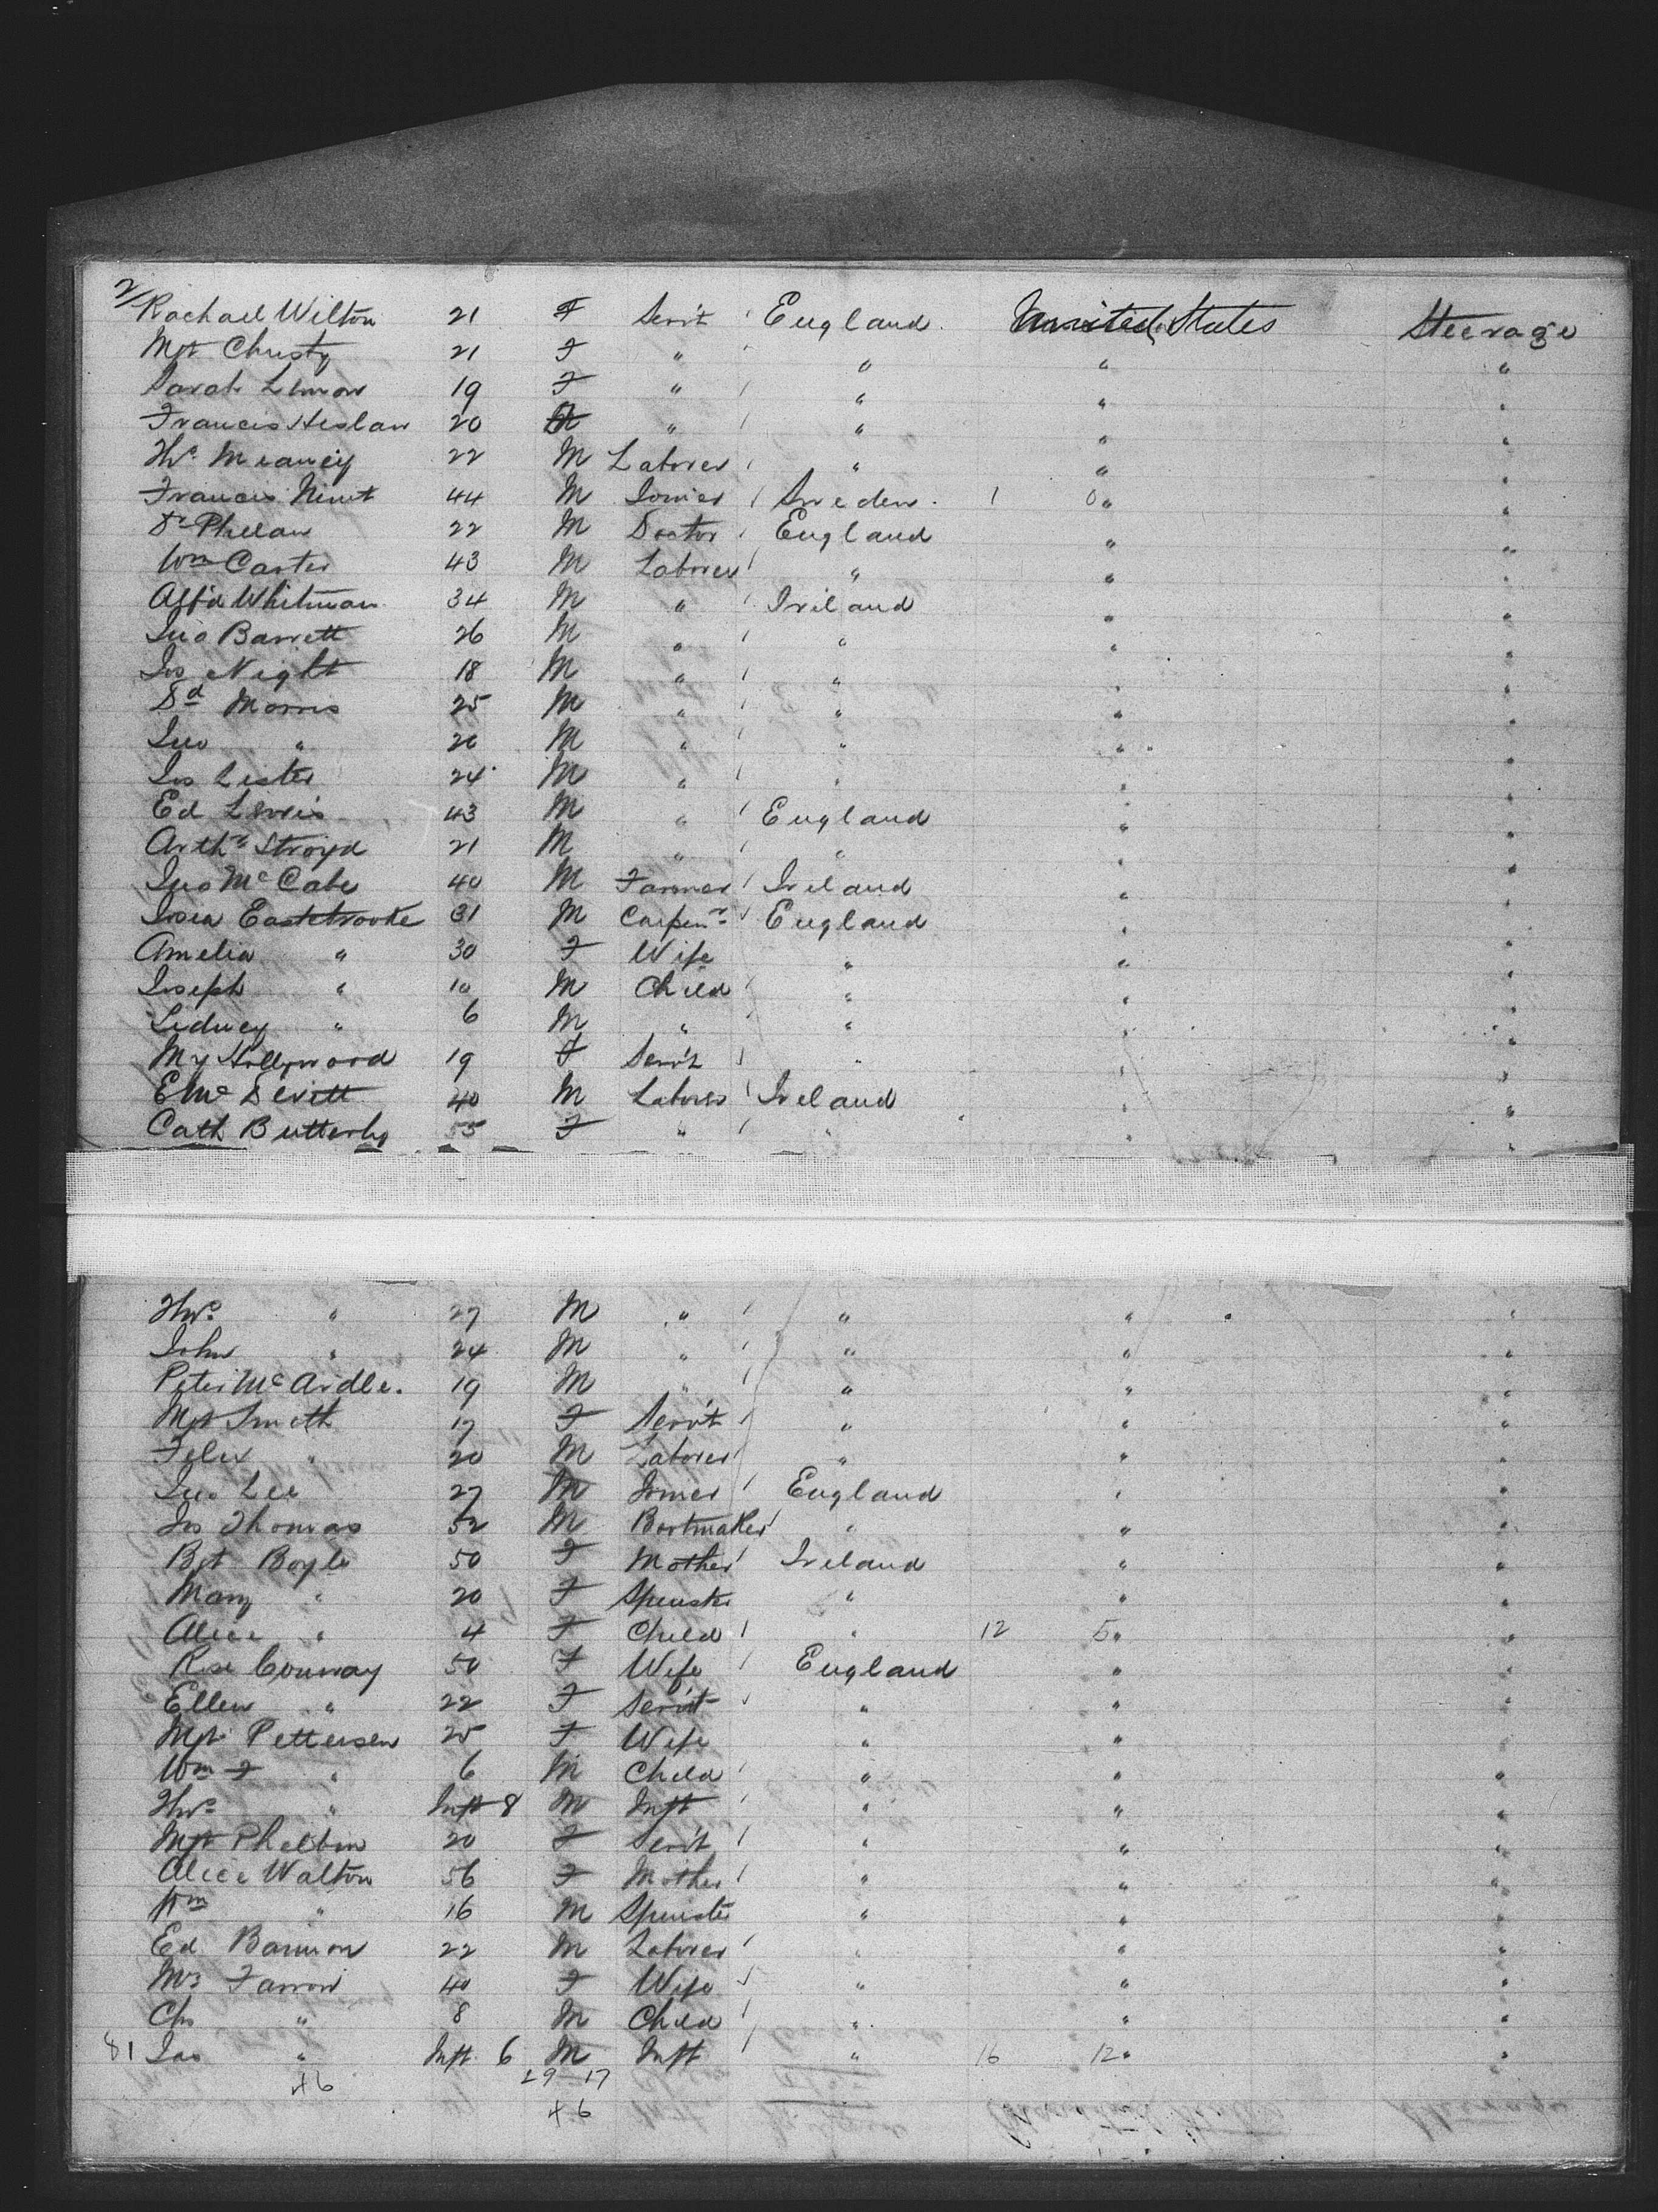 2/ Rachael Wilton 21 F Serv't England United States Steerage
Mgt Christy 21 F " " " "
Sarah Lemon 19 F " " " "
Francis Heslaw 20 " " " "
Thos Meaney 22 M Laborer " " "
Francis 44 M Joiner Sweden 1 0 " "
Dr Phelan 22 M Doctor England " "
Wm Carter 43 M Laborer " " "
Alf'd Whitman 34 M " Ireland " "
Jno Barrett 26 M " " " "
Jos Night 18 M " " " "
Dd Morris 25 M " " " "
Jno " 26 M " " " "
Jos Lister 24 M " " " "
Ed Lewis 43 M " England " "
Arthr Stroyd 21 M " " " "
Jno McCabe 40 M Farmer Ireland " "
Eastebrooke 31 M Carpenr England " "
Amelia " 30 F Wife " " "
Joseph " 10 M Child " " "
Sidney " 6 M " " " "
My Hollywood 19 F Serv't " " "
E McDevitt 40 M Laborer Ireland " "
Cath Butterly 55 F " " " "
Thos " 27 M " " " "
John " 24 M " " " "
Peter McArdle. 19 M " " " "
Mgt Smith 17 F Serv't " " "
Felix " 20 M Laborer " " "
Jno Lee 27 M Joiner England " "
Jos Thomas 52 M Bootmaker " " "
Bgt Boyle 50 F Mother Ireland " "
Mary " 20 F Spinster " " "
Alice " 4 F Child " 12 5 " "
Rose Conway 50 F Wife England " "
Ellen " 22 F Serv't " " "
Mgt Pettersen 25 F Wife " " "
Wm F " 6 M Child " " "
Thos " Inft 8 M Inft " " "
Mgt Phelbin 20 F Serv't " " "
Alice Walton 56 F Mother " " "
Wm " 16 M Spinster " " "
Ed Bannon 22 M Laborer " " "
Mrs Farron 40 F Wife " " "
Chs " 8 M Child " " "
81 Jas " Inft 6 M Inft " 16 12 " "
46 29 17
46